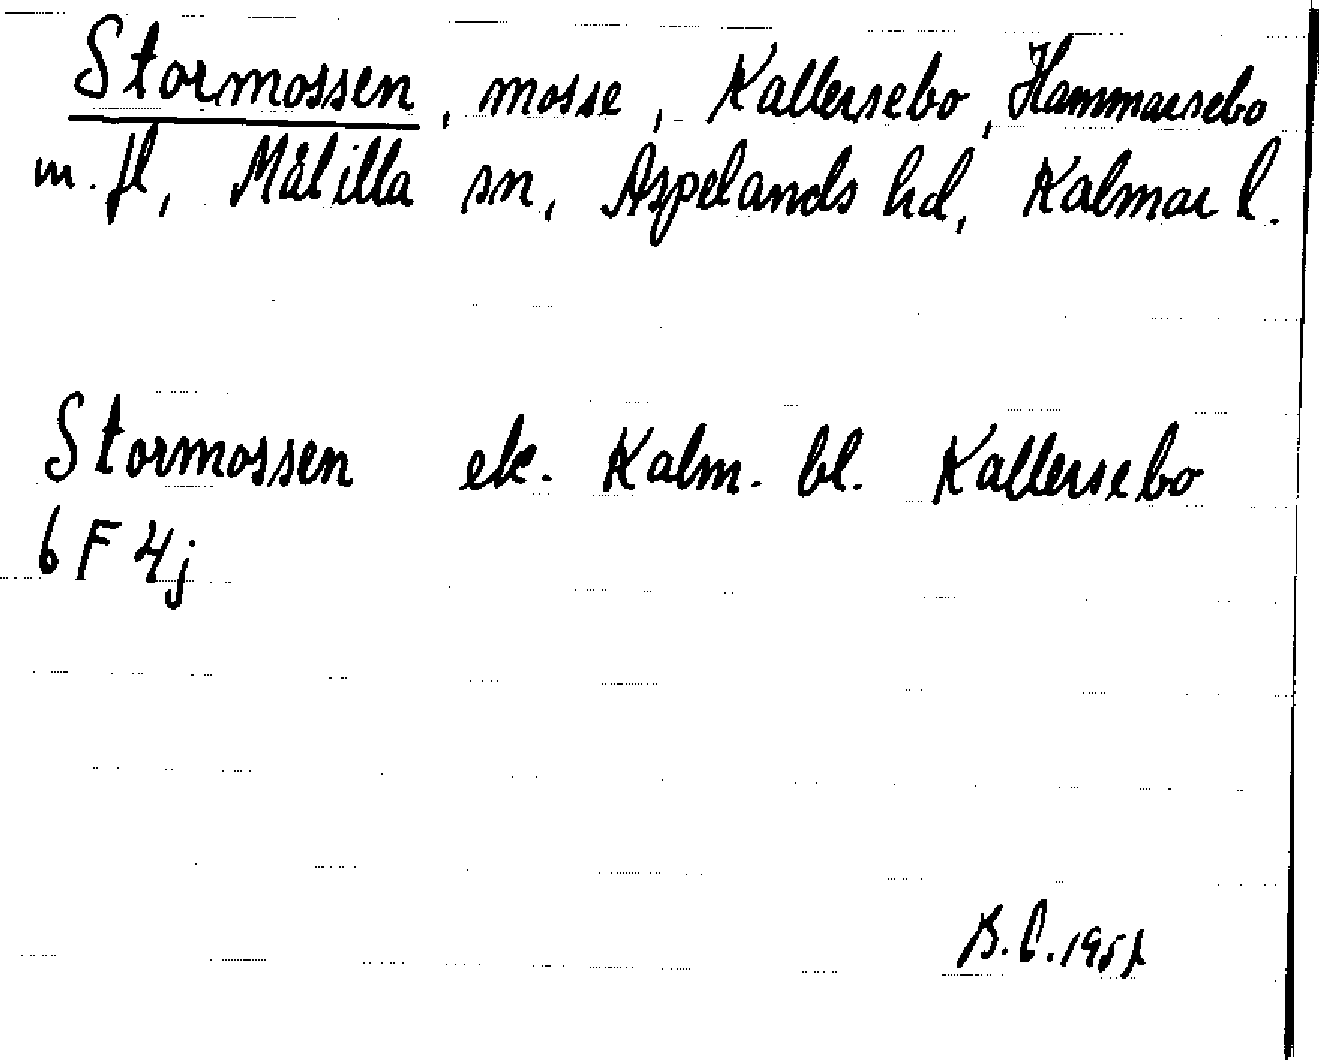 Stormossen, mosse, Kallersebo, Hammarsebo
m. fl, Målilla sn, Aspelands hd, Kalmar l.
Stormossen ek. Kalm. bl. Kallersebo
6 F 4j